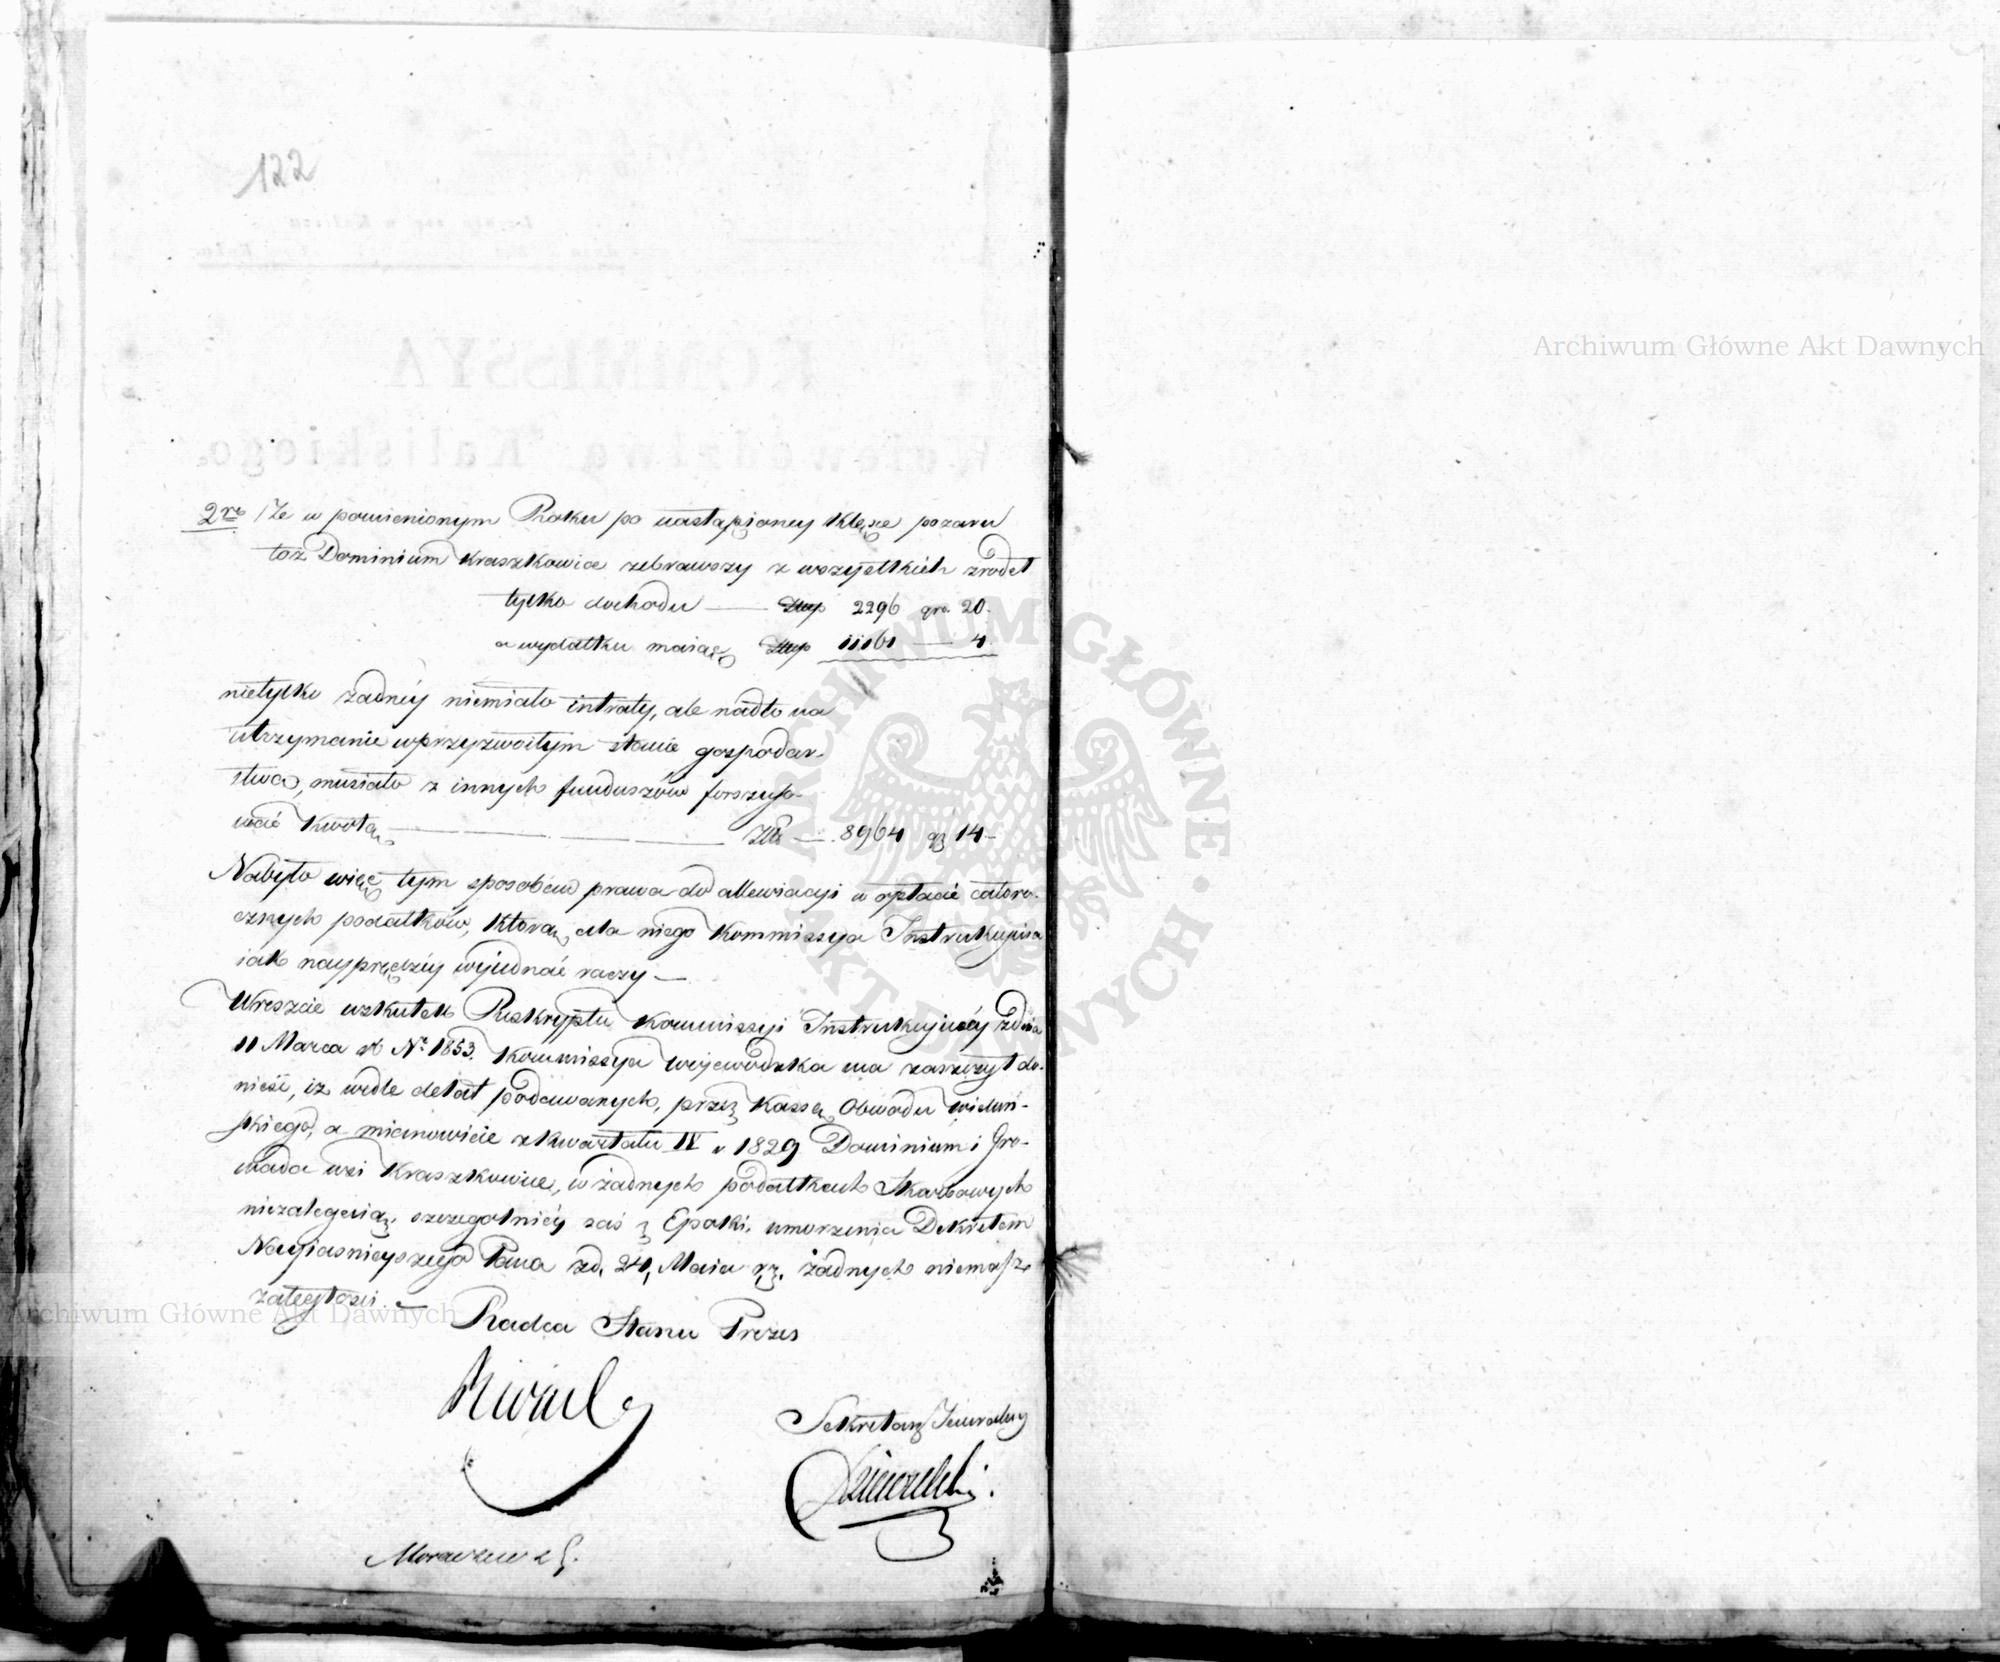 122
2re /Ze w pomienionym Roku po nastąpioney klęsce pozaru
toż Dominium Kraszkowice zebrawszy z wszystkich zrodeł
tylko dochodu — Złłp 2296 gro. 20.
a wydatku maiąc Złłp 11161 — 4.
nietylko żadnéy niemiało intraty, ale nadto na
utrzymanie w przyzwoitym stanie gospodar-
stwa, musiało z innych funduszów forszuso-
wać kwotą — Złł — 8964 gr 14 —
Nabyło więc tym sposobem prawa do allewiacyi w opłacie całoro-
cznych podatków, którą dla niego Kommissya Instrukcyina
iak nayprędzéy wyiednać raczy —
Wreszcie wskutek Reskryptu Kommissyi Instrukującéy z dnia
11 Marca rb Nr 1853. Kommissya Wojewódzka ma zaszczyt do-
nieść, iż wedle delat podawanych, przez Kassę Obwodu Wieluń-
skiego, a mianowicie z kwartału IV r 1829 Dominium i Gro-
mada wsi Kraszkowice, w żadnych podatkach Skarbowych
niezalegaią, szczegolniéy zaś z Epoki umorzenia Dekretem
Nayiaśnieyszego Pana zd. 24, Maia rz. żadnych niemasz
zaległosci. —
Radca Stanu Prezes
Sekretarz Jeneralny
KOMMISSYA
Województwa Kaliskiego.
Archiwum Główne Akt Dawnych
Archiwum Główne Akt Dawnych
ARCHIWUM GŁÓWNE AKT DAWNYCH